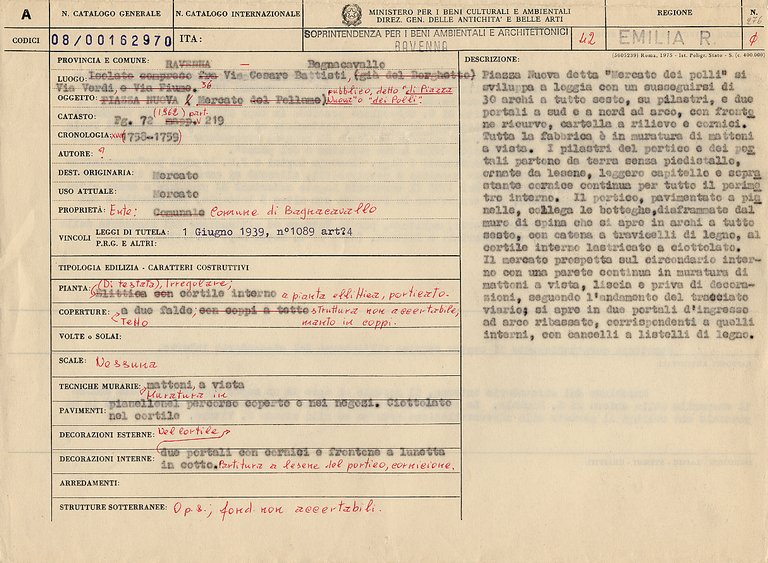 A
N. CATALOGO GENERALE
N. CATALOGO INTERNAZIONALE
MINISTERO PER I BENI CULTURALI E AMBIENTALI
DIREZ. GEN. DELLE ANTICHITA' E BELLE ARTI
REGIONE
N.
CODICI
08/00162970
ITA:
SOPRINTENDENZA PER I BENI AMBIENTALI E ARCHITETTONICI
RAVENNA
42
EMILIA R
PROVINCIA E COMUNE: RAVENNA — Bagnacavallo
LUOGO: Isolato compreso fra Via Cesare Battisti, (già del Borghetto)
Via Verdi, e Via Fiume. 36
OGGETTO: PIAZZA NUOVA (Mercato del Pollame) pubblico, detto "di Piazza
Nuova" o "dei Polli"
CATASTO: (1962) part.
Fg. 72 mapp. 219
CRONOLOGIA: (1758-1759)
AUTORE: ?
DEST. ORIGINARIA: Mercato
USO ATTUALE: Mercato
PROPRIETÀ: Ente: Comunale Comune di Bagnacavallo
VINCOLI
LEGGI DI TUTELA: 1 Giugno 1939, n°1089 art?4
P.R.G. E ALTRI:
TIPOLOGIA EDILIZIA - CARATTERI COSTRUTTIVI
PIANTA: (Di testata), Irregolare;
Elittica con cortile interno a pianta ellittica, porticato.
COPERTURE: a due falde, con coppi a tetto struttura non accertabile,
Tetto manto in coppi.
VOLTE o SOLAI:
SCALE: Nessuna
TECNICHE MURARIE: mattoni, a vista
Muratura in
PAVIMENTI: pianellenel percorso coperto e nei negozi. Ciottolato
nel cortile
DECORAZIONI ESTERNE: Del cortile
DECORAZIONI INTERNE: due portali con cornici e frontone a lunetta
in cotto. Partitura a lesene del portico, cornicione.
ARREDAMENTI:
STRUTTURE SOTTERRANEE: Op.s.; fond non accertabili.
(5605239) Roma, 1975 - Ist. Poligr. Stato - S. (c. 400.000)
DESCRIZIONE:
Piazza Nuova detta "Mercato dei polli" si
sviluppa a loggia con un susseguirsi di
30 archi a tutto sesto, su pilastri, e due
portali a sud e a nord ad arco, con fronto
ne ricurvo, cartella a rilievo e cornici.
Tutta la fabbrica è in muratura di mattoni
a vista. I pilastri del portico e dei por
tali partono da terra senza piedistallo,
ornate da lesene, leggero capitello e sopra
stante cornice continua per tutto il perime
tro interno. Il portico, pavimentato a pia
nelle, collega le botteghe, diaframmate dal
muro di spina che si apre in archi a tutto
sesto, con catena a travicelli di legno, al
cortile interno lastricato a ciottolato.
Il mercato prospetta sul circondario inter-
no con una parete continua in muratura di
mattoni a vista, liscia e priva di decora-
zioni, seguendo l'andamento del tracciato
viario; si apre in due portali d'ingresso
ad arco ribassato, corrispondenti a quelli
interni, con cancelli a listelli di legno.